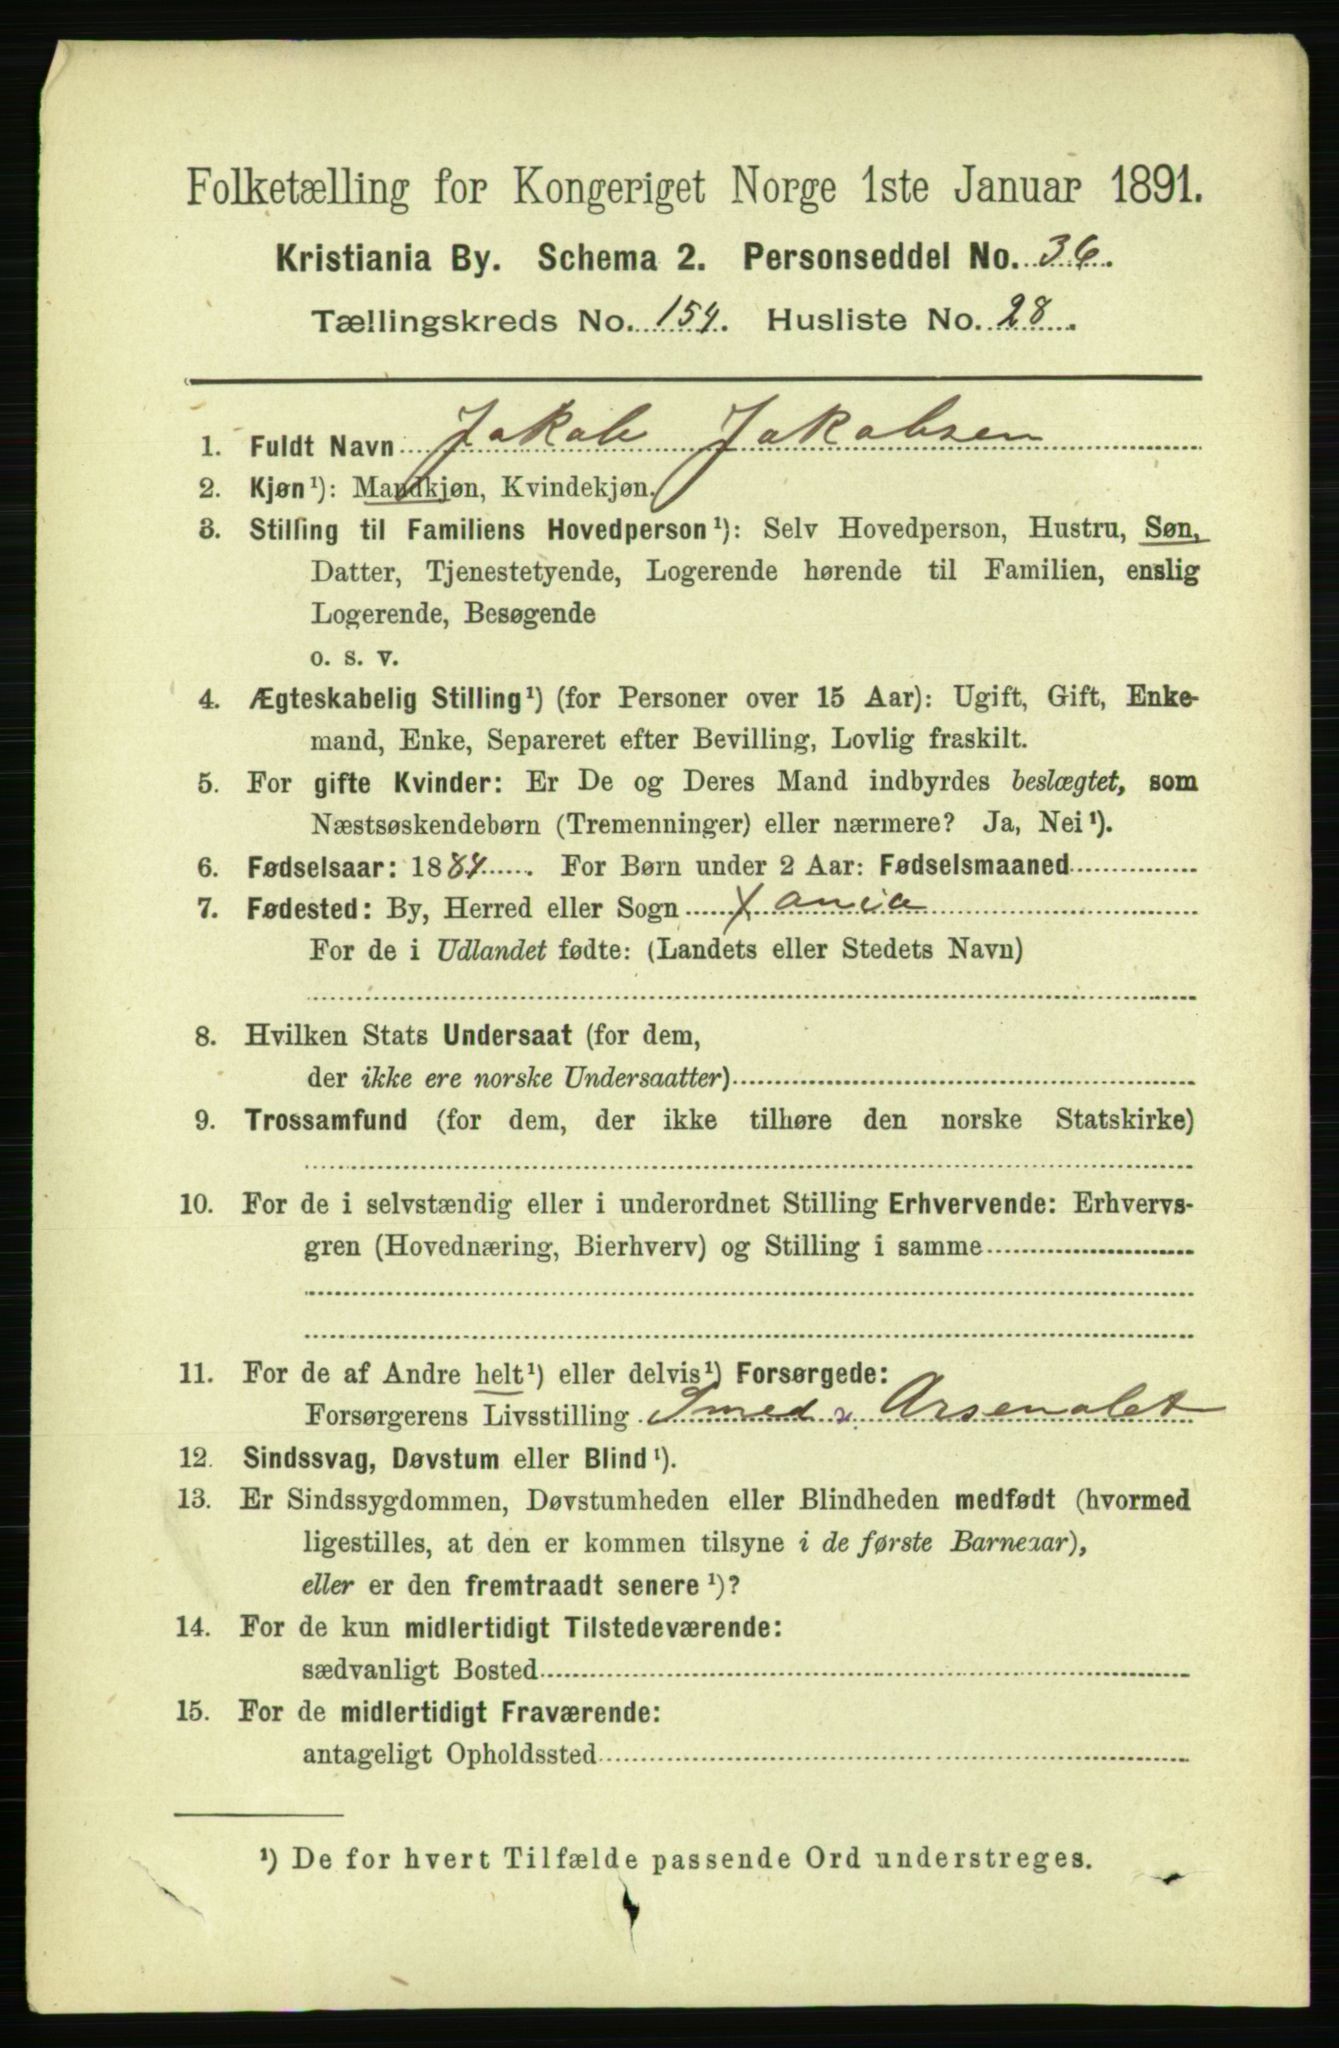 Folketælling for Kongeriget Norge 1ste Januar 1891.
Kristiania By. Schema 2. Personseddel No. 36.
Tællingskreds No. 154. Husliste No. 28.
1. Fuldt Navn Jakob Jakobsen
2. Kjøn¹): Mandkjøn, Kvindekjøn.
3. Stilling til Familiens Hovedperson¹): Selv Hovedperson, Hustru, Søn,
Datter, Tjenestetyende, Logerende hørende til Familien, enslig
Logerende, Besøgende
o. s. v.
4. Ægteskabelig Stilling¹) (for Personer over 15 Aar): Ugift, Gift, Enke-
mand, Enke, Separeret efter Bevilling, Lovlig fraskilt.
5. For gifte Kvinder: Er De og Deres Mand indbyrdes beslægtet, som
Næstsøskendebørn (Tremenninger) eller nærmere? Ja, Nei¹).
6. Fødselsaar: 1884. For Børn under 2 Aar: Fødselsmaaned
7. Fødested: By, Herred eller Sogn Xania
For de i Udlandet fødte: (Landets eller Stedets Navn)
8. Hvilken Stats Undersaat (for dem,
der ikke ere norske Undersaatter)
9. Trossamfund (for dem, der ikke tilhøre den norske Statskirke)
10. For de i selvstændig eller i underordnet Stilling Erhvervende: Erhvervs-
gren (Hovednæring, Bierhverv) og Stilling i samme
11. For de af Andre helt¹) eller delvis¹) Forsørgede:
Forsørgerens Livsstilling Smed Arsenalet
12. Sindssvag, Døvstum eller Blind¹).
13. Er Sindssygdommen, Døvstumheden eller Blindheden medfødt (hvormed
ligestilles, at den er kommen tilsyne i de første Barneaar),
eller er den fremtraadt senere¹)?
14. For de kun midlertidigt Tilstedeværende:
sædvanligt Bosted
15. For de midlertidigt Fraværende:
antageligt Opholdssted
¹) De for hvert Tilfælde passende Ord understreges.